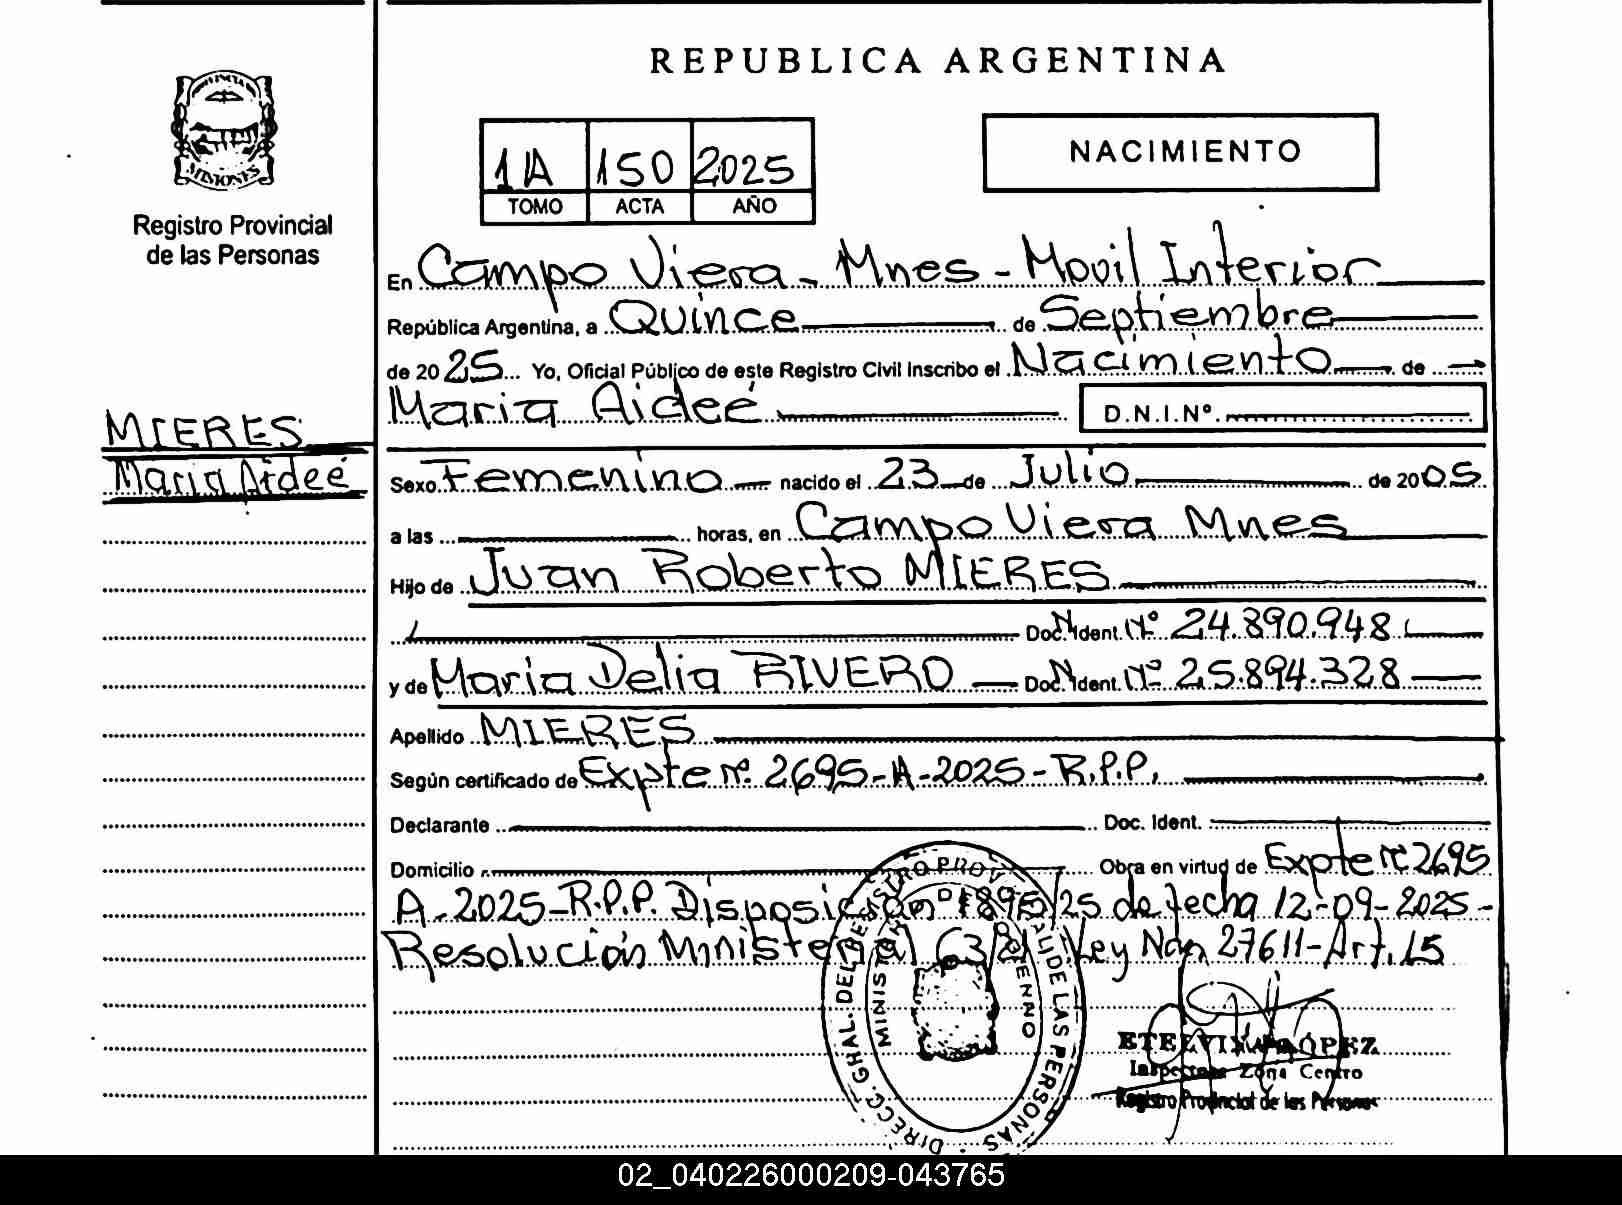 REPUBLICA ARGENTINA
MISIONES
Registro Provincial
de las Personas
1A 150 2025
TOMO ACTA AÑO
NACIMIENTO
En Campo Viera - Mnes - Movil Interior
República Argentina, a Quince de Septiembre
de 2025 Yo, Oficial Público de este Registro Civil Inscribo el Nacimiento de
Maria Aideé D.N.I.Nº.
MIERES
Maria Aideé
Sexo Femenino nacido el 23 de Julio de 2005
a las horas, en Campo Viera Mnes
Hijo de Juan Roberto MIERES
Doc. Ident. Nº 24.890.948
y de Maria Delia RIVERO Doc. Ident. Nº 25.894.328
Apellido MIERES
Según certificado de Expte nº 2695-A-2025-R.P.P.
Declarante Doc. Ident.
Domicilio Obra en virtud de Expte nº 2695
A-2025-R.P.P. Disposición nº /25 de fecha 12-09-2025-
Resolución Ministerial Ley Nac. 27611-Art. 15
DIRECC. GRAL. DEL REGISTRO PROVINCIAL DE LAS PERSONAS
MINISTERIO DE GOBIERNO
ETELVINA LÓPEZ
Inspectora Zona Centro
Registro Provincial de las Personas
02_040226000209-043765